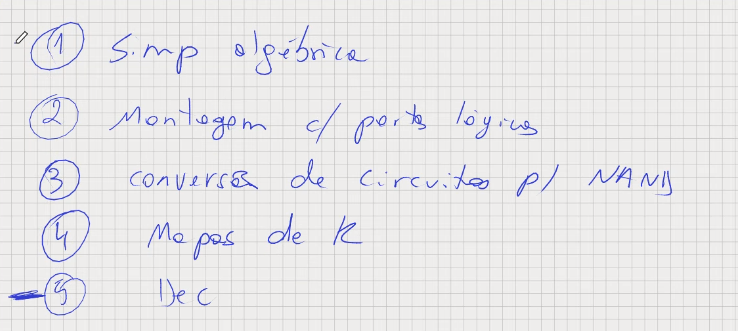 1 Simp algébrica
2 Montagem c/ portas lógicas
3 conversão de circuitos p/ NAND
4 Mapas de K
5 Dec